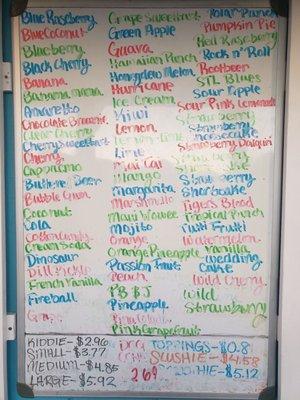 Blue Raspberry
Blue Coconut
Blueberry
Black Cherry
Banana
Banana
Amaretto
Chocolate
Clear Cherry
Cherry
Cherry
Capuccino
Butter Beer
Bubble Gum
Coconut
Cola
Cotton Candy
Cream Soda
Dinosaur
Dill Pickle
French Vanilla
Fireball
Grape
Grape Sweetheart
Green Apple
Guava
Hawaiian Punch
Honeydew Melon
Hurricane
Ice Cream
Kiwi
Lemon
Lemon-Lime
Lime
Mai Tai
Mango
Margarita
Marshmello
Maui Wowee
Mojito
Orange
Orange Pineapple
Passion Fruit
Peach
PB&J
Pineapple
Pina Colada
Pink Grapefruit
Polar Punch
Pumpkin Pie
Red Raspberry
Rock n' Roll
Rootbeer
STL Blues
Sour Apple
Sour Pink Lemonade
Strawberry
Strawberry
Cheesecake
Strawberry Daiquiri
Strawberry
Strawberry
Shortcake
Tigers Blood
Tropical Punch
Tutti Frutti
Watermelon
Vanilla
Wedding
Cake
Wild Cherry
Wild
Strawberry
KIDDIE-$2.96
SMALL-$3.77
MEDIUM-$4.85
LARGE-$5.92
DOG
CONE
2.69
TOPPINGS-$0.8
SLUSHIE-$4.58
$5.12